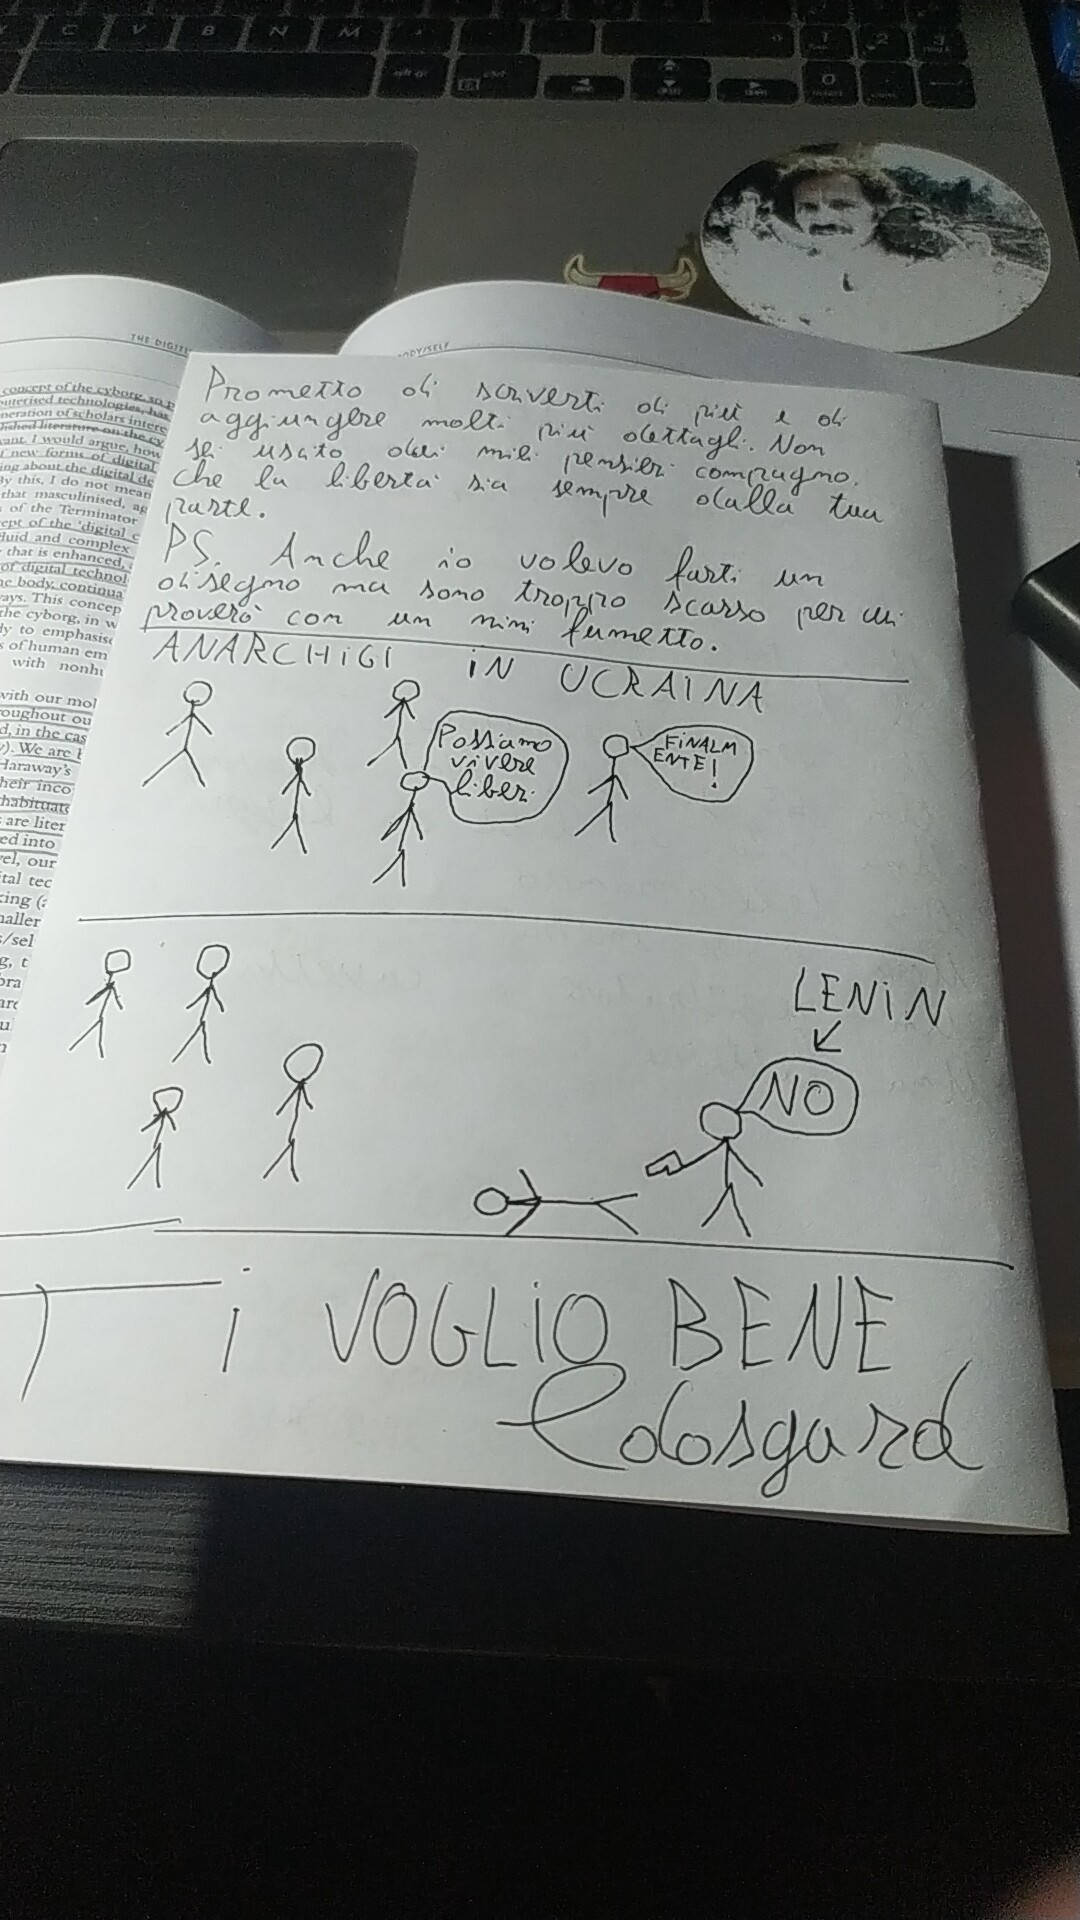 C V B N M
alt gr
ctrl
1
2
3
0
THE DIGIT
BODY/SELF
concept of the cyborg, so p
outerised technologies, has
neration of scholars intere
lished literature on the cy
vant. I would argue, how
f new forms of digital
ng about the digital de
By this, I do not mean
that masculinised, ag
s of the Terminator
cept of the 'digital c
fluid and complex
that is enhanced,
of digital technol
he body, continua
ays. This concep
the cyborg, in w
ly to emphasise
s of human em
with nonhu
with our mol
roughout ou
d, in the cas
y). We are
Haraway's
heir inco
habituate
are liter
ed into
vel, our
ital tec
king (a
maller
s/sel
g, t
bra
are
Prometto di scriverti di più e di
aggiungere molti più dettagli. Non
sei uscito dai miei pensieri compagno,
che la libertà sia sempre dalla tua
parte.
PS. Anche io volevo farti un
disegno ma sono troppo scarso per cui
proverò con un mini fumetto.
ANARCHiCi iN UCRAiNA
Possiamo
vivere
liberi
FiNALM
ENTE!
LENiN
NO
Ti VOGLiO BENE
Edosgard